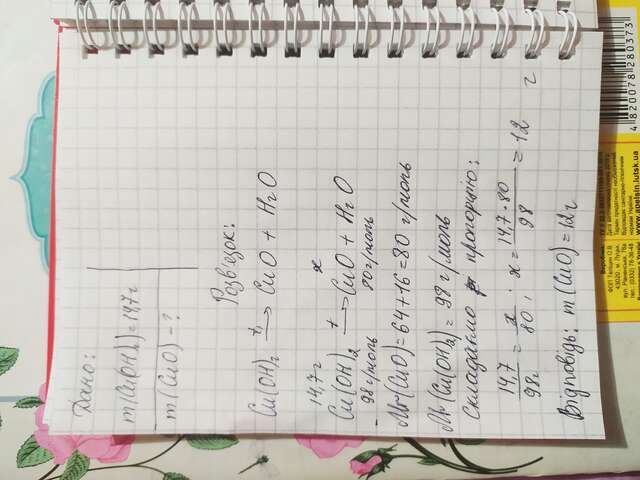 Дано:
m(Cu(OH)₂)=14,7г
m(CuO)-?
Розв'язок:
Cu(OH)₂ →t CuO + H₂O
14,7г x
Cu(OH)₂ →t CuO + H₂O
98г/моль 80г/моль
Mr(CuO)=64+16=80 г/моль
Mr(Cu(OH)₂)=98 г/моль
Складаємо пропорцію:
14,7/98г = x/80; x = 14,7·80/98 = 12 г
Відповідь: m(CuO)=12г
4820078280373
www.poelsin.lutsk.ua
43020, м. Луцьк,